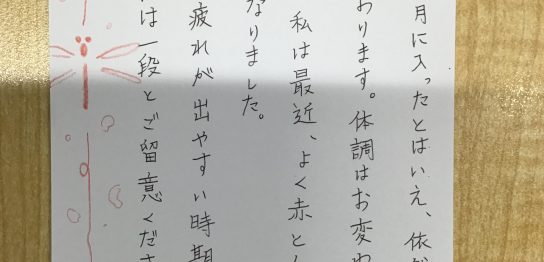 月に入ったとはいえ、依
おります。体調はお変わ
私は最近、よく赤と
なりました。
疲れが出やすい時期
は一段とご留意くださ